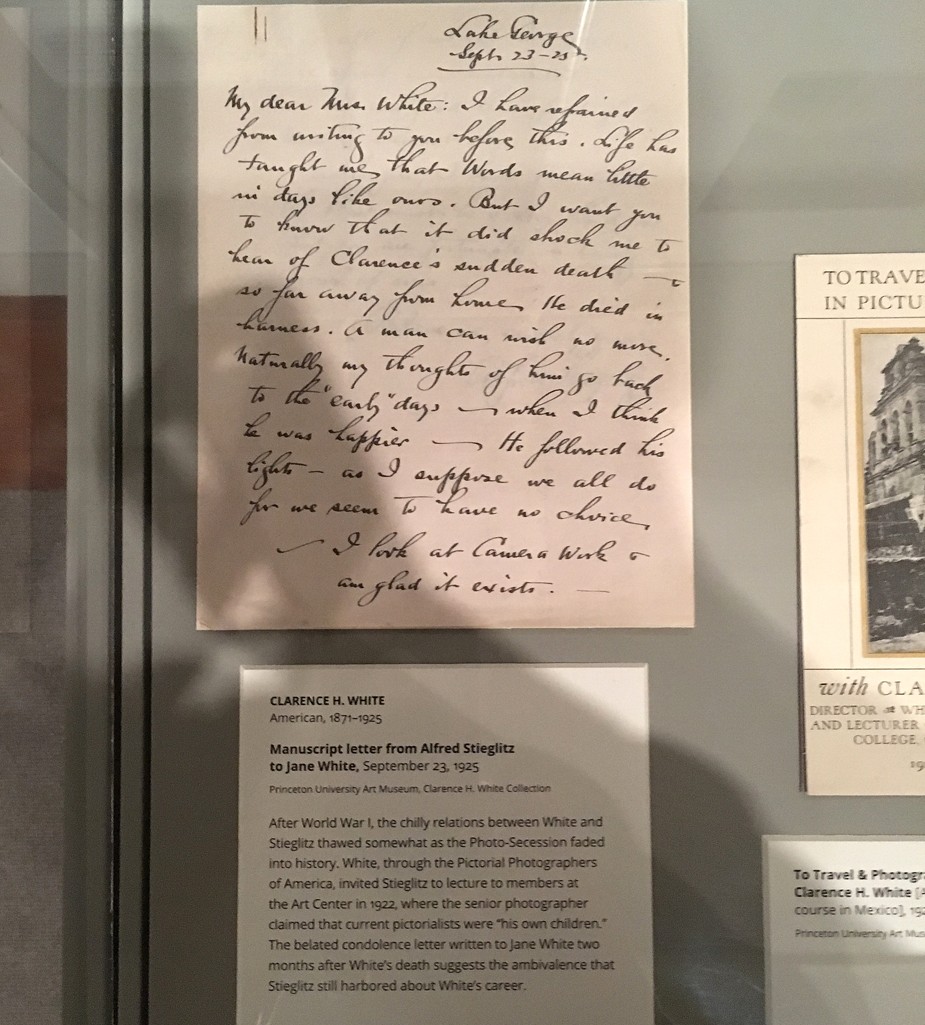 Lake George
Sept. 23-25.
My dear Mrs. White: I have refrained
from writing to you before this. Life has
taught me that Words mean little
in days like ours. But I want you
to know that it did shock me to
hear of Clarence's sudden death —
so far away from home. He died in
harness. A man can wish no more.
Naturally my thoughts of him go back
to the "early" days — when I think
he was happier — He followed his
lights — as I suppose we all do
for we seem to have no choice.
— I look at Camera Work &
am glad it exists. —
CLARENCE H. WHITE
American, 1871–1925
Manuscript letter from Alfred Stieglitz
to Jane White, September 23, 1925
Princeton University Art Museum, Clarence H. White Collection
After World War I, the chilly relations between White and
Stieglitz thawed somewhat as the Photo-Secession faded
into history. White, through the Pictorial Photographers
of America, invited Stieglitz to lecture to members at
the Art Center in 1922, where the senior photographer
claimed that current pictorialists were “his own children.”
The belated condolence letter written to Jane White two
months after White's death suggests the ambivalence that
Stieglitz still harbored about White's career.
TO TRAVE
IN PICTU
with CLA
DIRECTOR at WH
AND LECTURER
COLLEGE,
19
To Travel & Photogra
Clarence H. White [A
course in Mexico], 192
Princeton University Art Mus